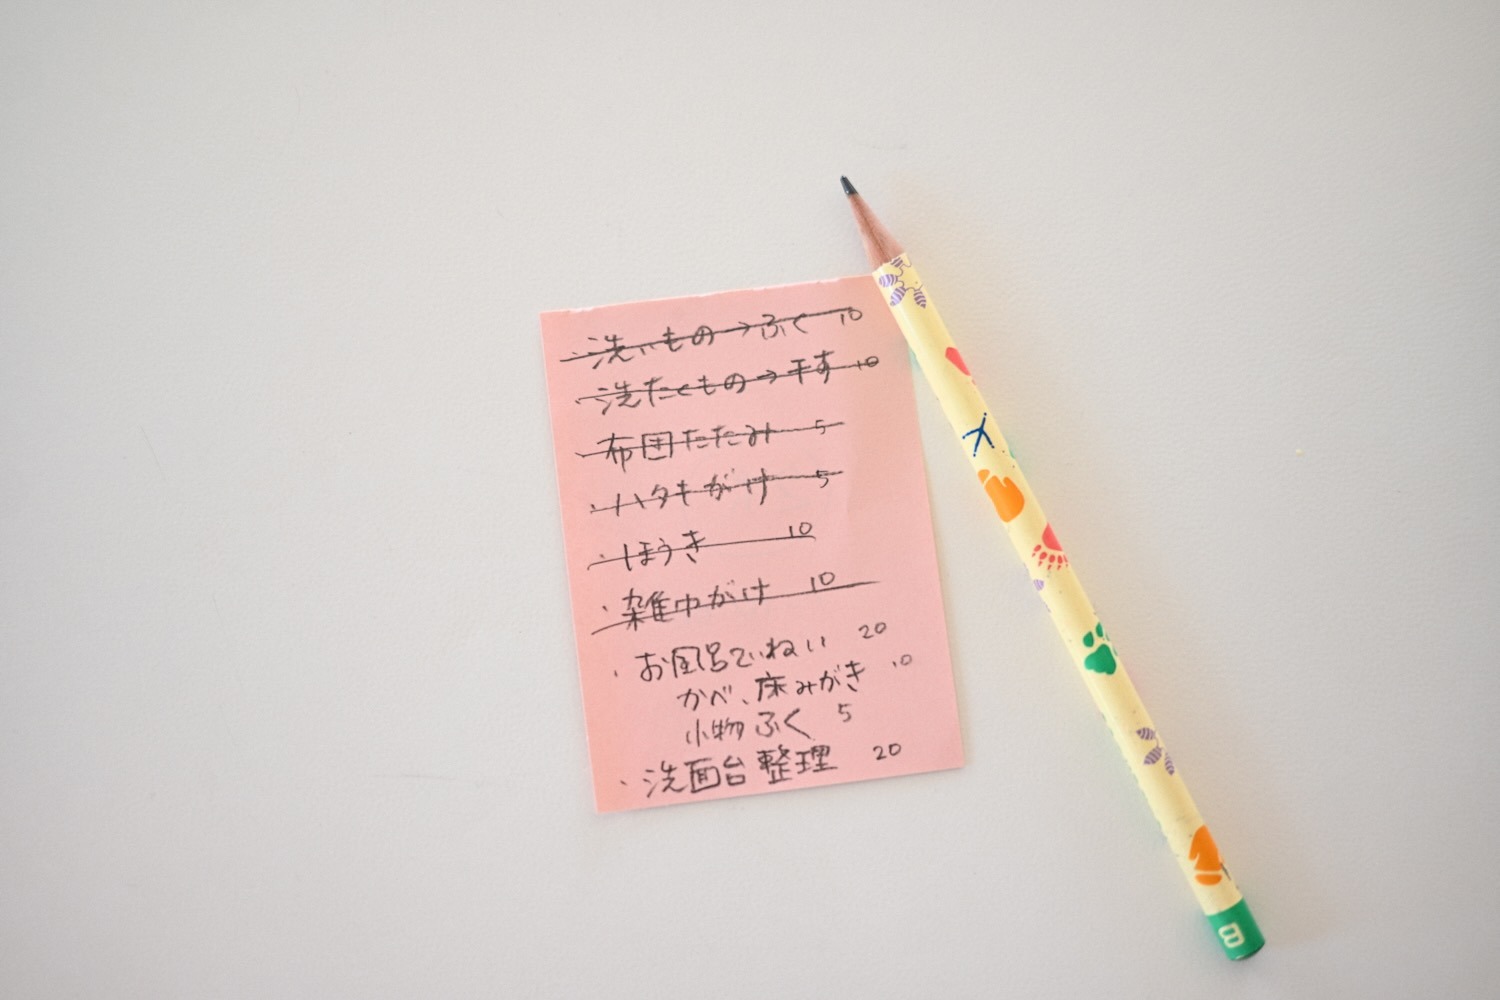 ・洗いもの→ふく 10
・洗たくもの→干す 10
・布団たたみ 5
・ハタキがけ 5
・ほうき 10
・雑巾がけ 10
・お風呂ていねい 20
かべ、床みがき 10
小物ふく 5
・洗面台整理 20
B